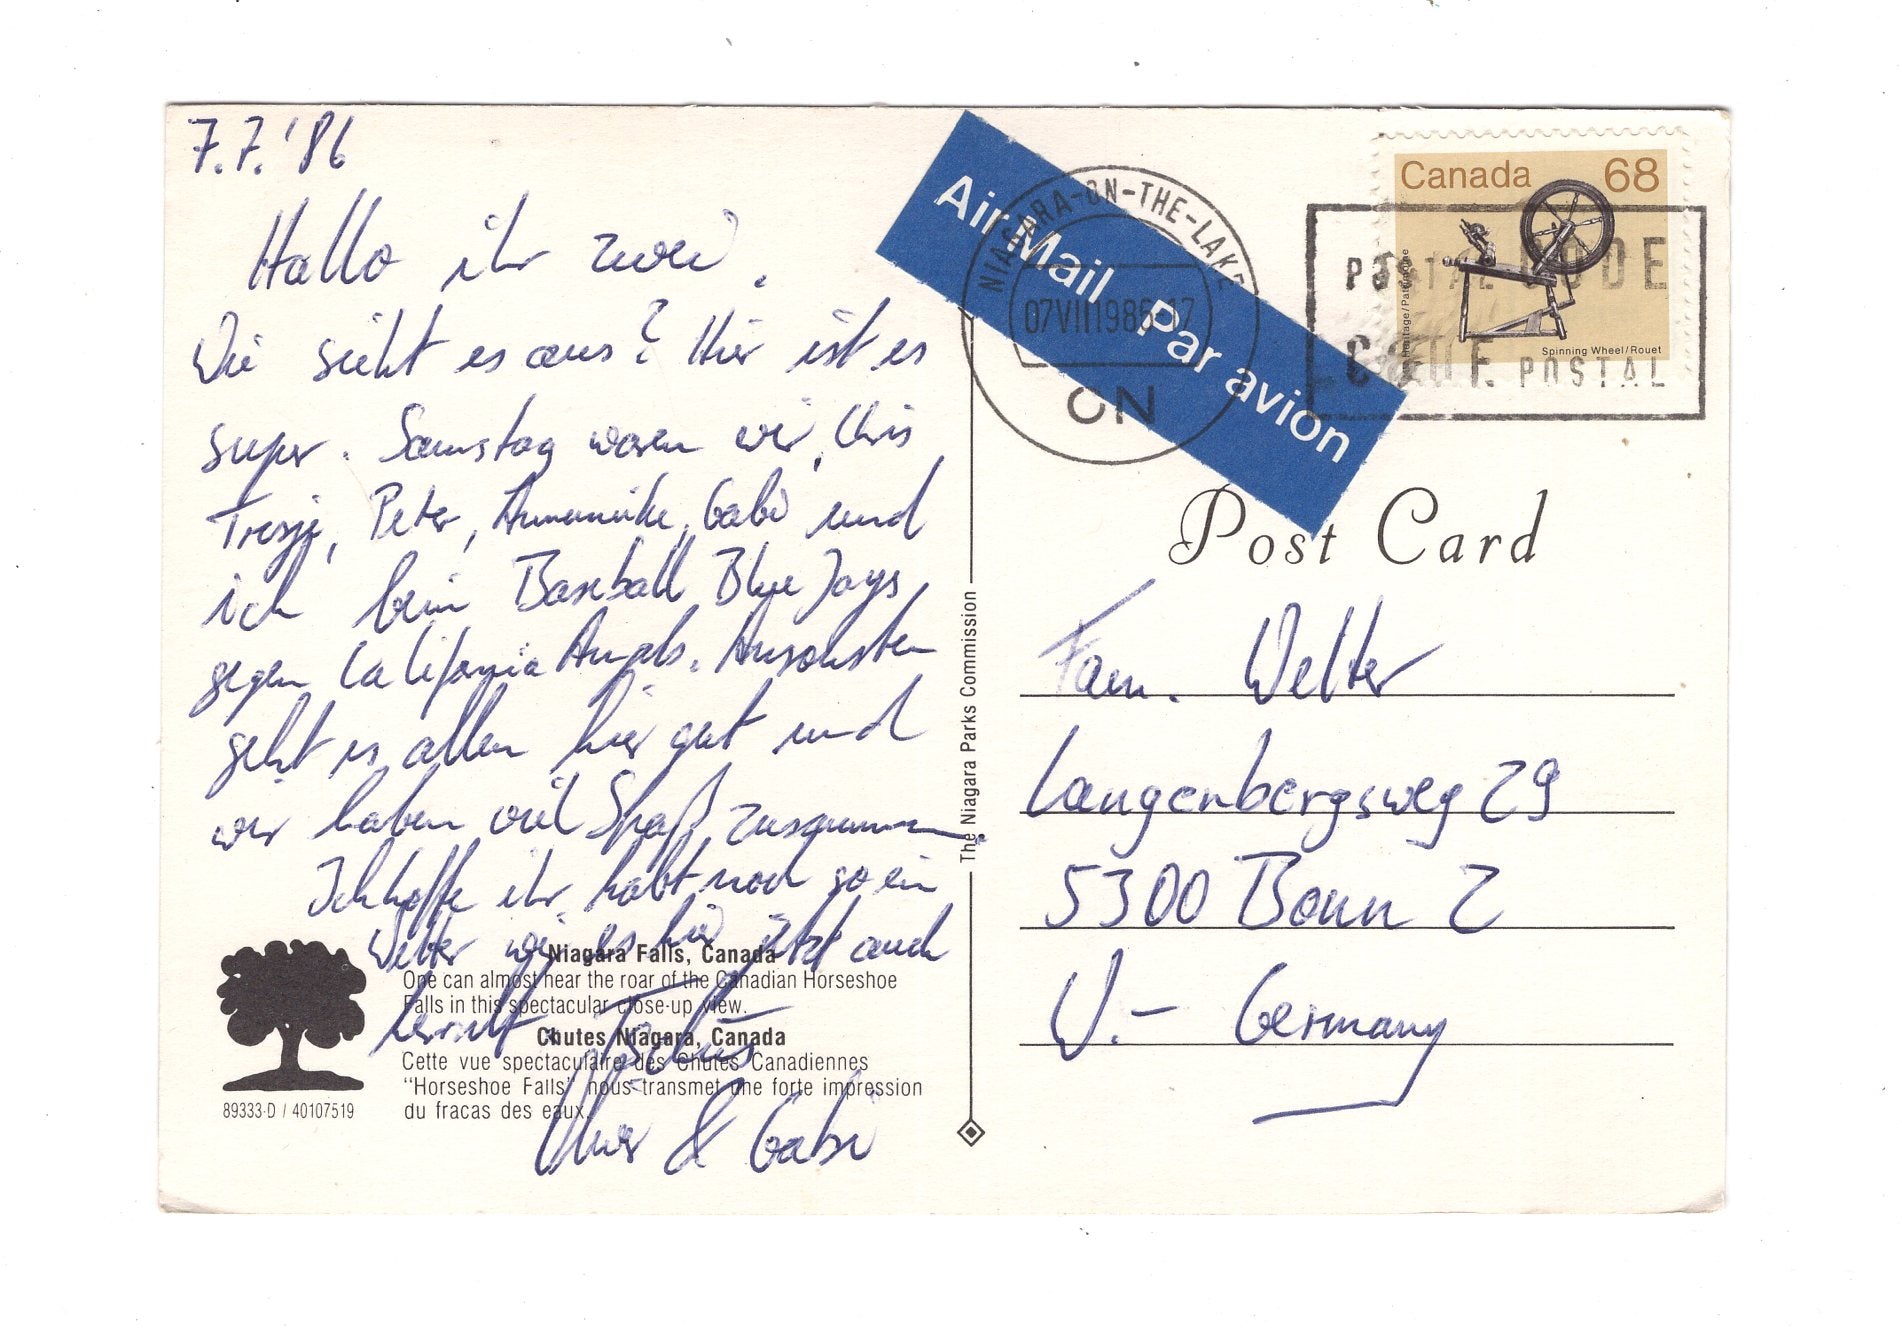 7.7.'86
Hallo ihr zwei.
Wie sieht es aus? Hier ist es
super. Samstag waren wir, Chris
Peter, Annemike, Gabi und
ich beim Baseball Blue Jays
gegen California Angels. Ansonsten
geht es allen hier gut und
wir haben viel Spaß zusammen.
Ich hoffe ihr habt noch so ein
Wetter wie es hier jetzt auch
herrscht. Tschüs
& Gabi
Niagara Falls, Canada
One can almost hear the roar of the Canadian Horseshoe
Falls in this spectacular close-up view.
Chutes Niagara, Canada
Cette vue spectaculaire des Chutes Canadiennes
"Horseshoe Falls" nous transmet une forte impression
du fracas des eaux.
89333-D / 40107519
The Niagara Parks Commission
Air Mail Par avion
NIAGARA-ON-THE-LAKE
07VII1986-17
ON
Canada 68
Heritage/Patrimoine
Spinning Wheel/Rouet
POSTAL CODE
CODE POSTAL
Post Card
Fam. Welter
Langenbergsweg 29
5300 Bonn 2
W.- Germany